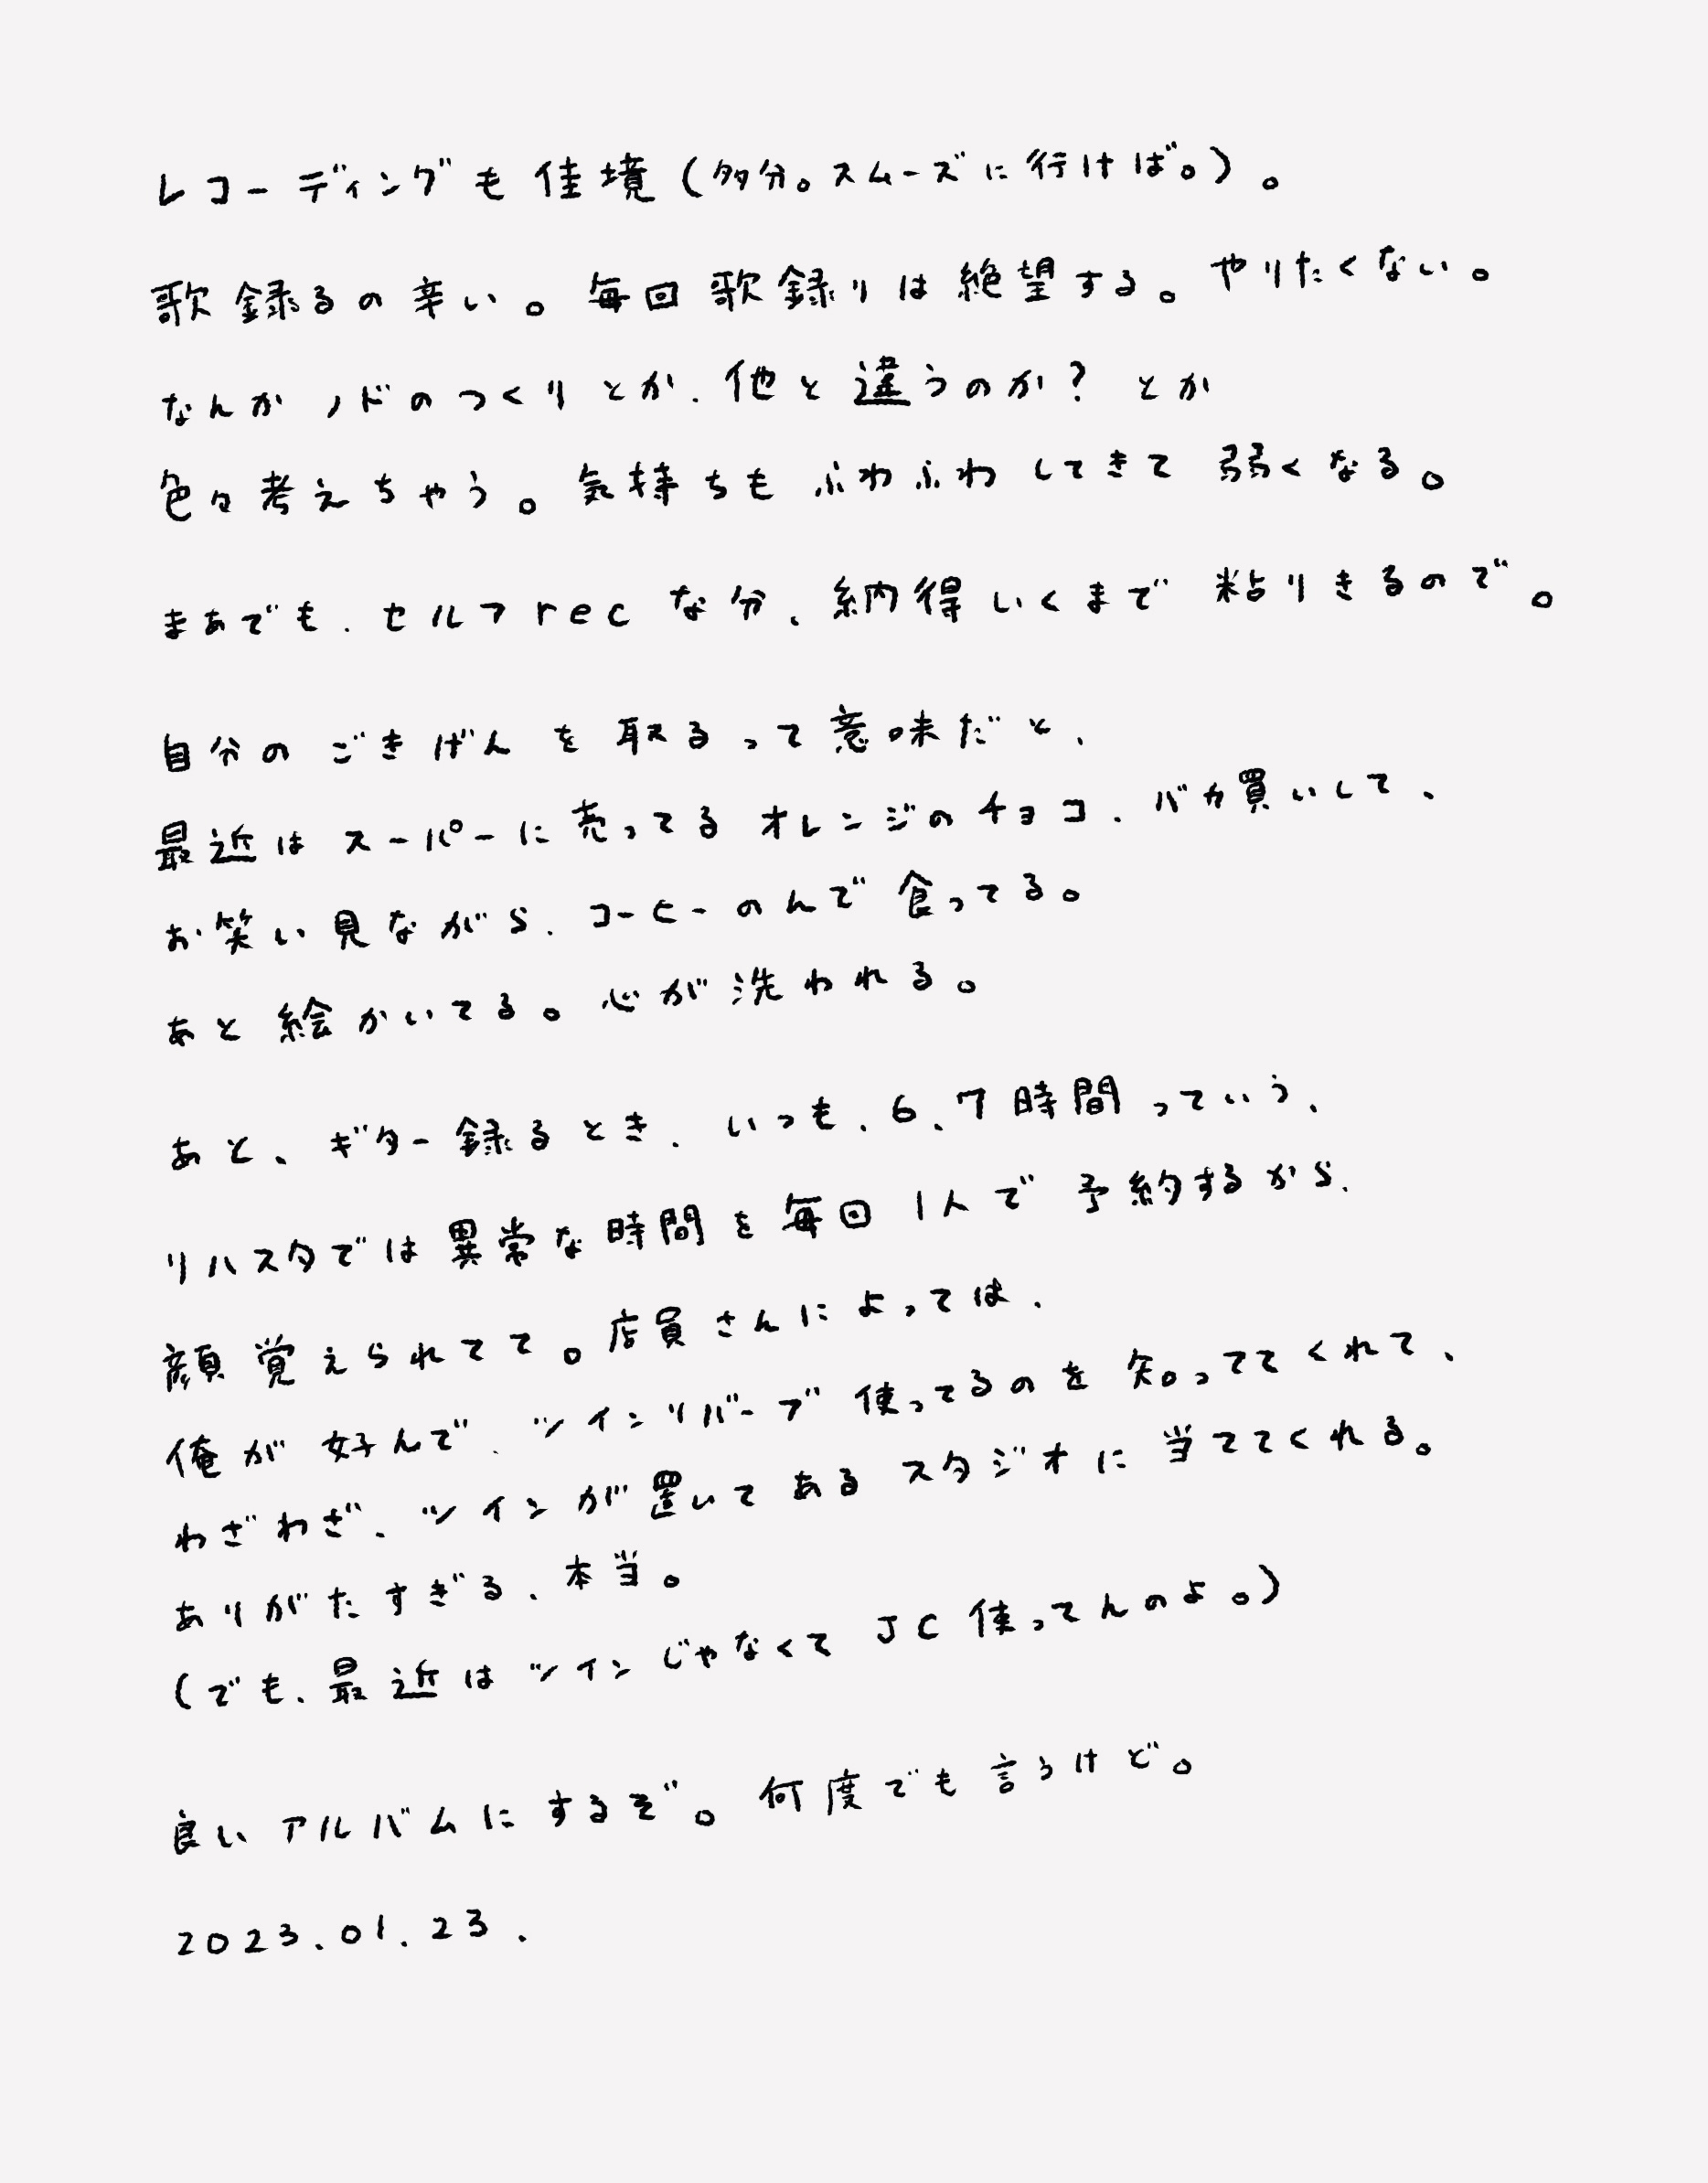 レコーディングも佳境(多分。スムーズに行けば。)。
歌録るの辛い。毎回歌録りは絶望する。やりたくない。
なんかノドのつくりとか、他と違うのか?とか
色々考えちゃう。気持ちもふわふわしてきて弱くなる。
まあでも、セルフrecな分、納得いくまで粘りきるので。
自分のごきげんを取るって意味だと、
最近はスーパーに売ってるオレンジのチョコ、バカ買いして、
お笑い見ながら、コーヒーのんで食ってる。
あと絵かいてる。心が洗われる。
あと、ギター録るとき、いつも、6、7時間っていう、
リハスタでは異常な時間を毎回1人で予約するから、
顔覚えられてて。店員さんによっては、
俺が好んで、ツインリバーブ使ってるのを知っててくれて、
わざわざ、ツインが置いてあるスタジオに当ててくれる。
ありがたすぎる、本当。
(でも、最近はツインじゃなくてJC使ってんのよ。)
良いアルバムにするぞ。何度でも言うけど。
2023.01.23.